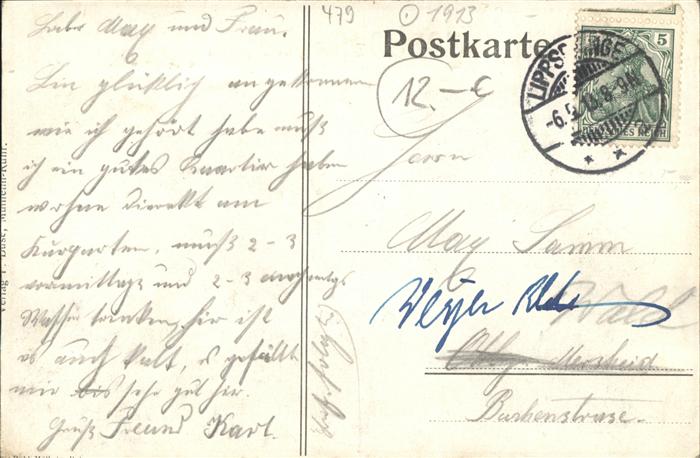 479 1913
Postkarte
12.-€
LIPPSPRINGE
-6.5.13.8-9N.
5
DEUTSCHES REICH
Lieber Max und Frau.
Bin glücklich angekommen
wie ich gehört habe muß
ich ein gutes Quartier haben
wohne direkt am
Kurgarten, muß 2-3
vormittags und 2-3 nachmittgs
Wasser trinken, hier ist
es auch kalt, es gefällt
mir bis sehr gut hir.
Gruß Freund Karl.
Herrn
Max Samm
Weyer
Wald
Merscheid
Buchenstrase.
Verlag F. Büse, Mülheim-Ruhr.